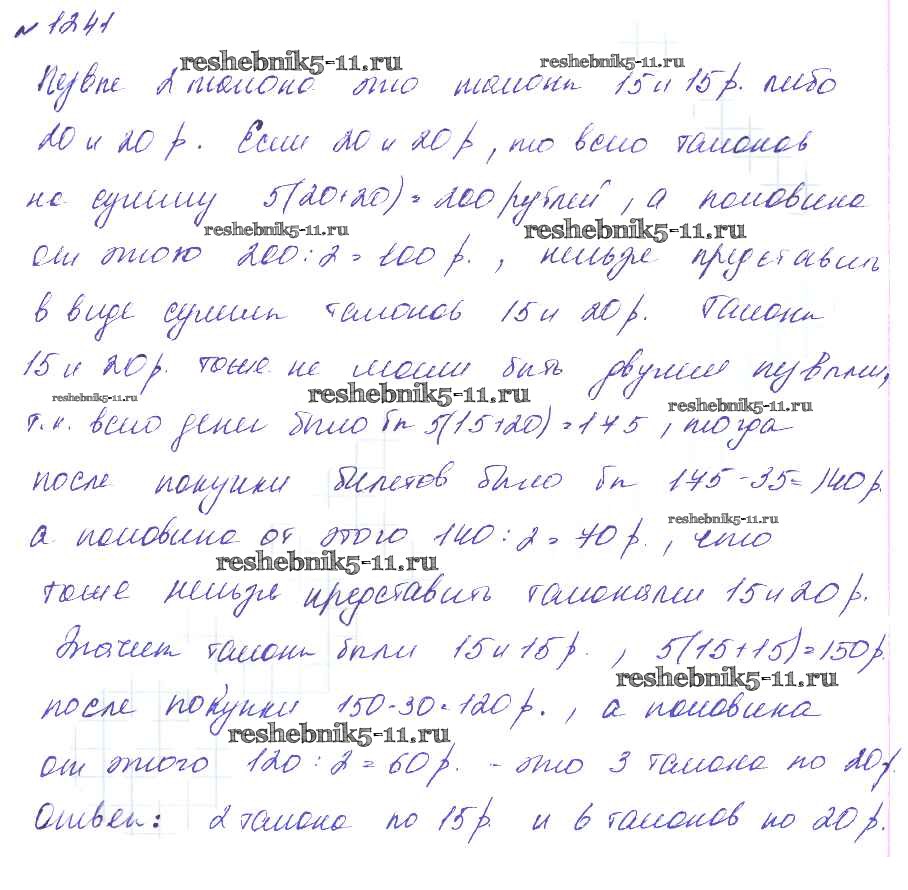 № 1241
reshebnik5-11.ru reshebnik5-11.ru
Первые 2 талона это талоны 15 и 15 р. либо
20 и 20 р. Если 20 и 20 р, то всего талонов
на сумму 5(20+20)=200 рублей, а половина
reshebnik5-11.ru reshebnik5-11.ru
от этого 200:2=100 р., нельзя представить
в виде суммы талонов 15 и 20 р. Талоны
15 и 20 р. тоже не могли быть двумя первыми,
reshebnik5-11.ru reshebnik5-11.ru reshebnik5-11.ru
т.к. всего денег было бы 5(15+20)=175, тогда
после покупки билетов было бы 175-35=140 р.
reshebnik5-11.ru
а половина от этого 140:2=70 р., что
reshebnik5-11.ru
тоже нельзя представить талонами 15 и 20 р.
Значит талоны были 15 и 15 р., 5(15+15)=150 р.
reshebnik5-11.ru
после покупки 150-30=120 р., а половина
reshebnik5-11.ru
от этого 120:2=60 р. - это 3 талона по 20 р.
Ответ: 2 талона по 15 р. и 6 талонов по 20 р.